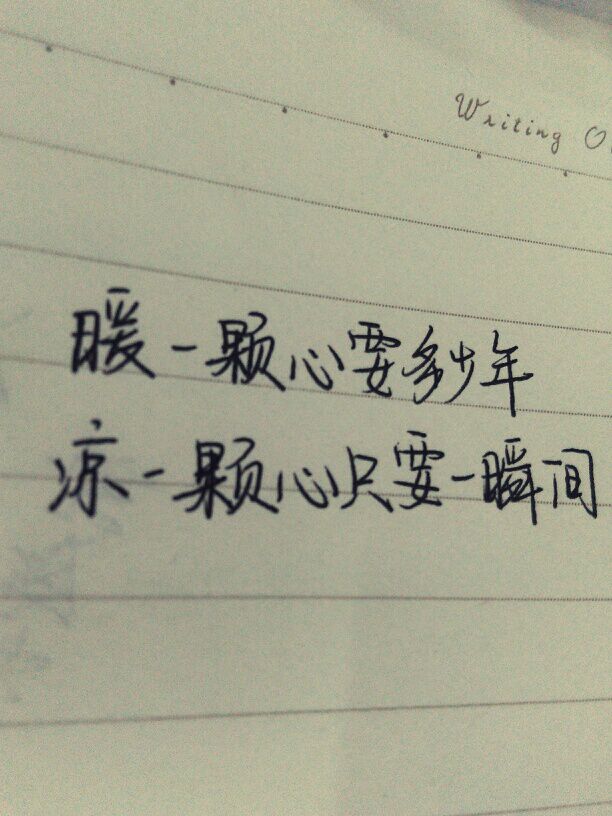 Writing O
暖一颗心要多少年
凉一颗心只要一瞬间